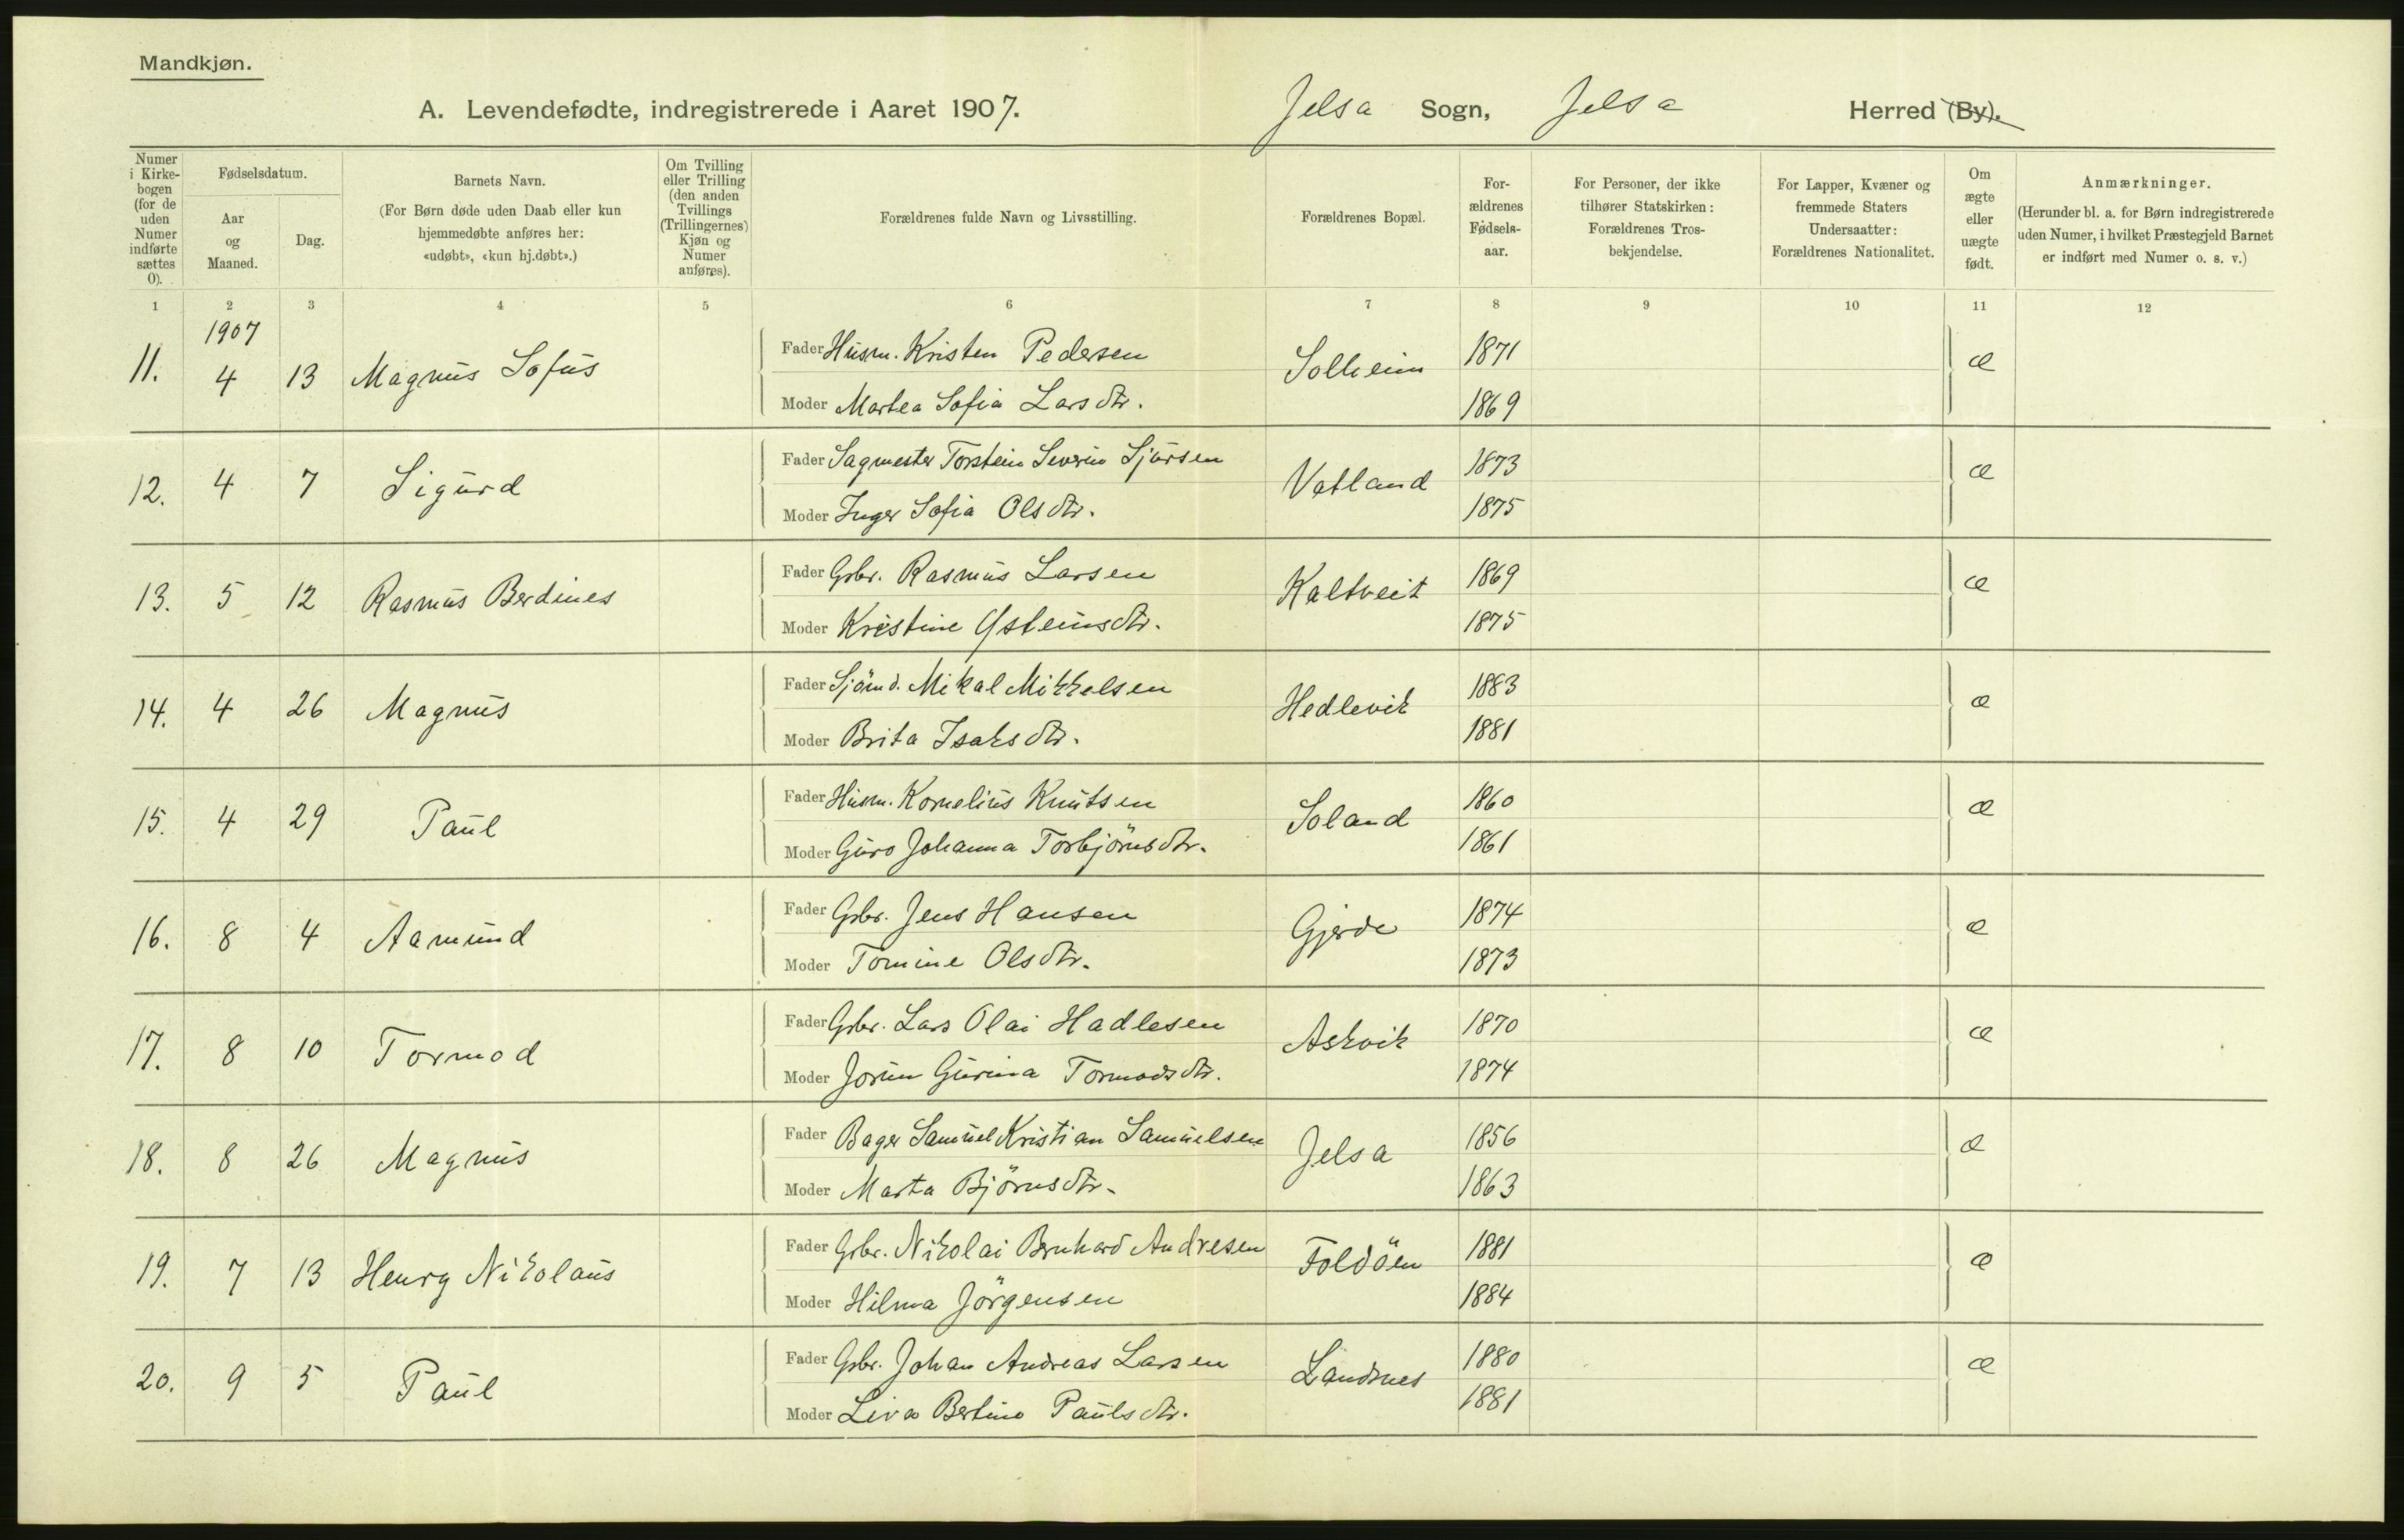 Mandkjøn.
A. Levendefødte, indregistrerede i Aaret 1907. Jelsa Sogn, Jelsa Herred (By).
Numer i Kirke-bogen (for de uden Numer indførte sættes 0).
Fødselsdatum.
Aar og Maaned.
Dag.
Barnets Navn.
(For Børn døde uden Daab eller kun
hjemmedøbte anføres her:
«udøbt», «kun hj.døbt».)
Om Tvilling
eller Trilling
(den anden
Tvillings
(Trillingernes)
Kjøn og
Numer
anføres).
Forældrenes fulde Navn og Livsstilling.
Forældrenes Bopæl.
For-
ældrenes
Fødsels-
aar.
For Personer, der ikke
tilhører Statskirken:
Forældrenes Tros-
bekjendelse.
For Lapper, Kvæner og
fremmede Staters
Undersaatter:
Forældrenes Nationalitet.
Om
ægte
eller
uægte
født.
Anmærkninger.
(Herunder bl. a. for Børn indregistrerede
uden Numer, i hvilket Præstegjeld Barnet
er indført med Numer o. s. v.)
1 2 3 4 5 6 7 8 9 10 11 12
1907
11. 4 13 Magnus Sofus Fader Husm. Kristen Pedersen Solheim 1871 æ
Moder Martea Sofia Larsdtr. 1869
12. 4 7 Sigurd Fader Sagmester Torstein Severin Sjursen Vatland 1873 æ
Moder Inger Sofia Olsdtr. 1875
13. 5 12 Rasmus Berdines Fader Gbr. Rasmus Larsen Kaltveit 1869 æ
Moder Kristine Østeinsdtr. 1875
14. 4 26 Magnus Fader Sjömd. Mikal Mikkelsen Hedlevik 1883 æ
Moder Brita Isaksdtr. 1881
15. 4 29 Paul Fader Husm. Kornelius Knutsen Soland 1860 æ
Moder Guro Johanna Torbjörnsdtr. 1861
16. 8 4 Aamund Fader Gbr. Jens Hansen Gjerde 1874 æ
Moder Tomine Olsdtr. 1873
17. 8 10 Tormod Fader Gbr. Lars Olai Hadlesen Askvik 1870 æ
Moder Jorun Gurina Tormodsdtr. 1874
18. 8 26 Magnus Fader Bager Samuel Kristian Samuelsen Jelsa 1856 æ
Moder Marta Björnsdtr. 1863
19. 7 13 Henry Nikolaus Fader Gbr. Nikolai Bernhard Andresen Foldöen 1881 æ
Moder Hilma Jörgensen 1884
20. 9 5 Paul Fader Gbr. Johan Andreas Larsen Landsnes 1880 æ
Moder Liva Bertine Paulsdtr. 1881